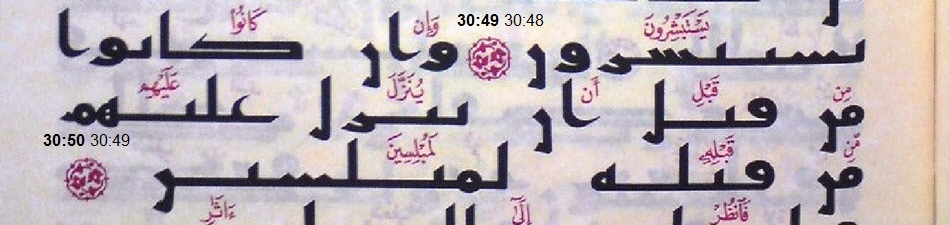 30:49 30:48
يَسْتَبْشِرُونَ وَإِن كَانُوا۟
يستبشرون وان كانوا
مِن قَبْلِ أَن يُنَزَّلَ عَلَيْهِم
من قبل ان ينزل عليهم
30:50 30:49
مِّن قَبْلِهِۦ لَمُبْلِسِينَ
من قبله لمبلسين
فَٱنظُرْ إِلَىٰٓ ءَاثَٰرِ